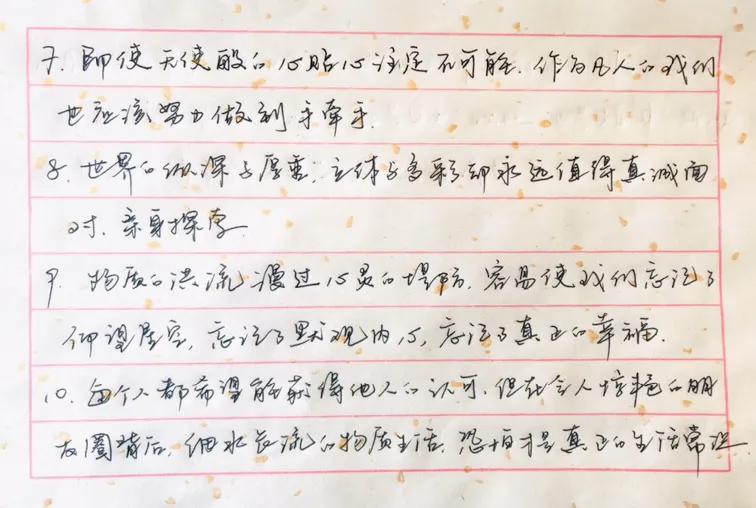 7. 即使天使般的心贴心注定不可能，作为凡人的我们
也应该努力做到手牵手.
8. 世界的纵深与厚重，立体与多彩却永远值得真诚面
对、亲身探索.
9. 物质的洪流漫过心灵的堤防，容易使我们忘记了
仰望星空，忘记了默观内心，忘记了真正的幸福.
10. 每个人都希望能获得他人的认可，但在令人惊艳的朋
友圈背后，细水长流的物质生活，恐怕才是真正的生活常态.